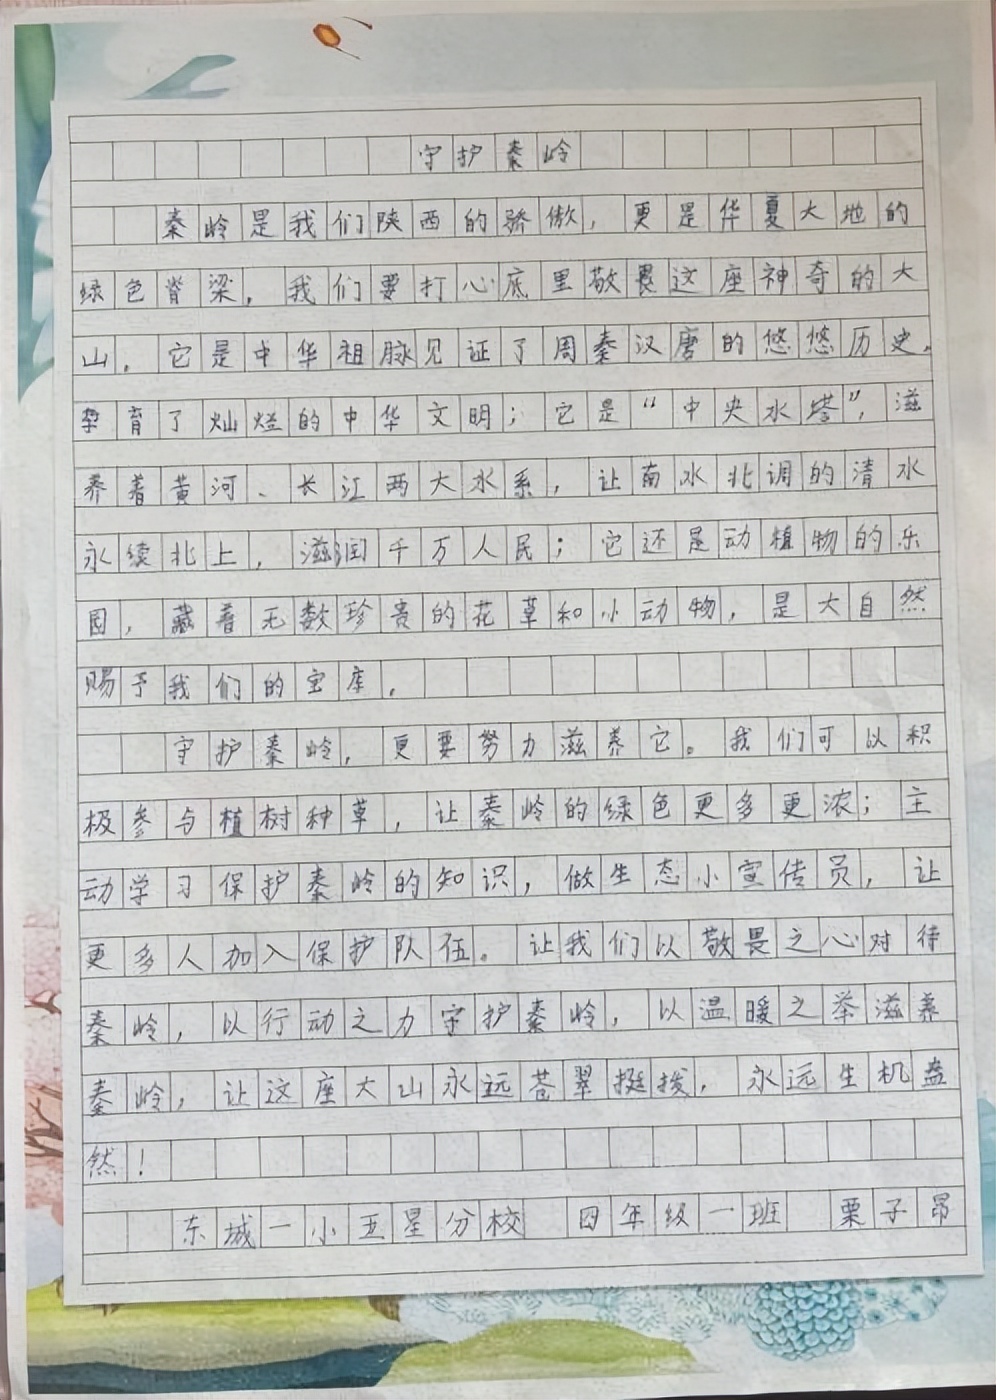 守护秦岭
秦岭是我们陕西的骄傲，更是华夏大地的
绿色脊梁，我们要打心底里敬畏这座神奇的大
山。它是中华祖脉见证了周秦汉唐的悠悠历史，
孕育了灿烂的中华文明；它是“中央水塔”，滋
养着黄河、长江两大水系，让南水北调的清水
永续北上，滋润千万人民；它还是动植物的乐
园，藏着无数珍贵的花草和小动物，是大自然
赐予我们的宝库。
守护秦岭，更要努力滋养它。我们可以积
极参与植树种草，让秦岭的绿色更多更浓；主
动学习保护秦岭的知识，做生态小宣传员，让
更多人加入保护队伍。让我们以敬畏之心对待
秦岭，以行动之力守护秦岭，以温暖之举滋养
秦岭，让这座大山永远苍翠挺拔，永远生机盎
然！
东城一小五星分校 四年级一班 栗子昂